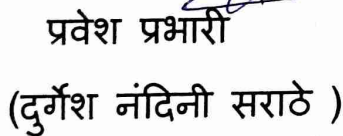 प्रवेश प्रभारी
(दुर्गेश नंदिनी सराठे )